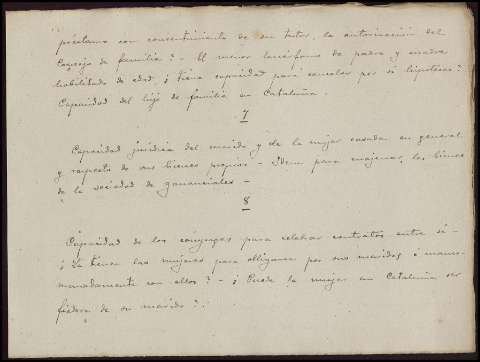 préstamo con consentimiento de su tutor, la autorización del
Consejo de familia? - El menor huérfano de padre y madre
habilitado de edad ¿tiene capacidad para cancelar por si hipotecas?
Capacidad del hijo de familia en Cataluña.
7
Capacidad jurídica del marido y de la mujer casada en general
y respecto de sus bienes propios - Idem para enajenar los bienes
de la sociedad de gananciales -
8
Capacidad de los cónyuges para celebrar contratos entre si -
¿La tienen las mujeres para obligarse por sus maridos o manco-
munadamente con ellos? - ¿Puede la mujer en Cataluña ser
fiadora de su marido?.